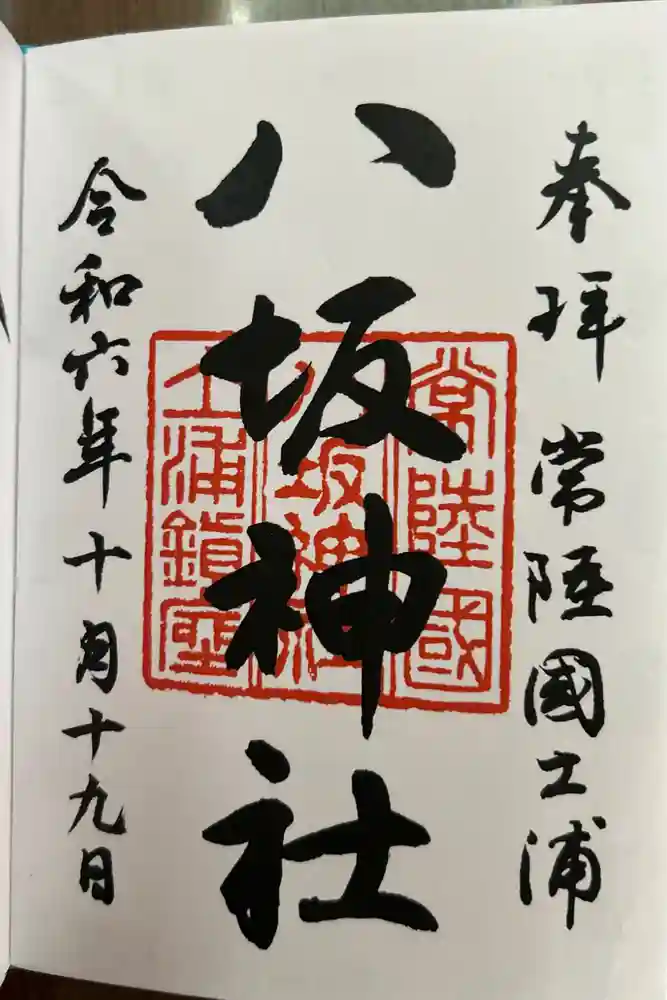 奉拝 常陸國土浦
八坂神社
令和六年十月十九日
常陸國
八坂神社
土浦鎮座